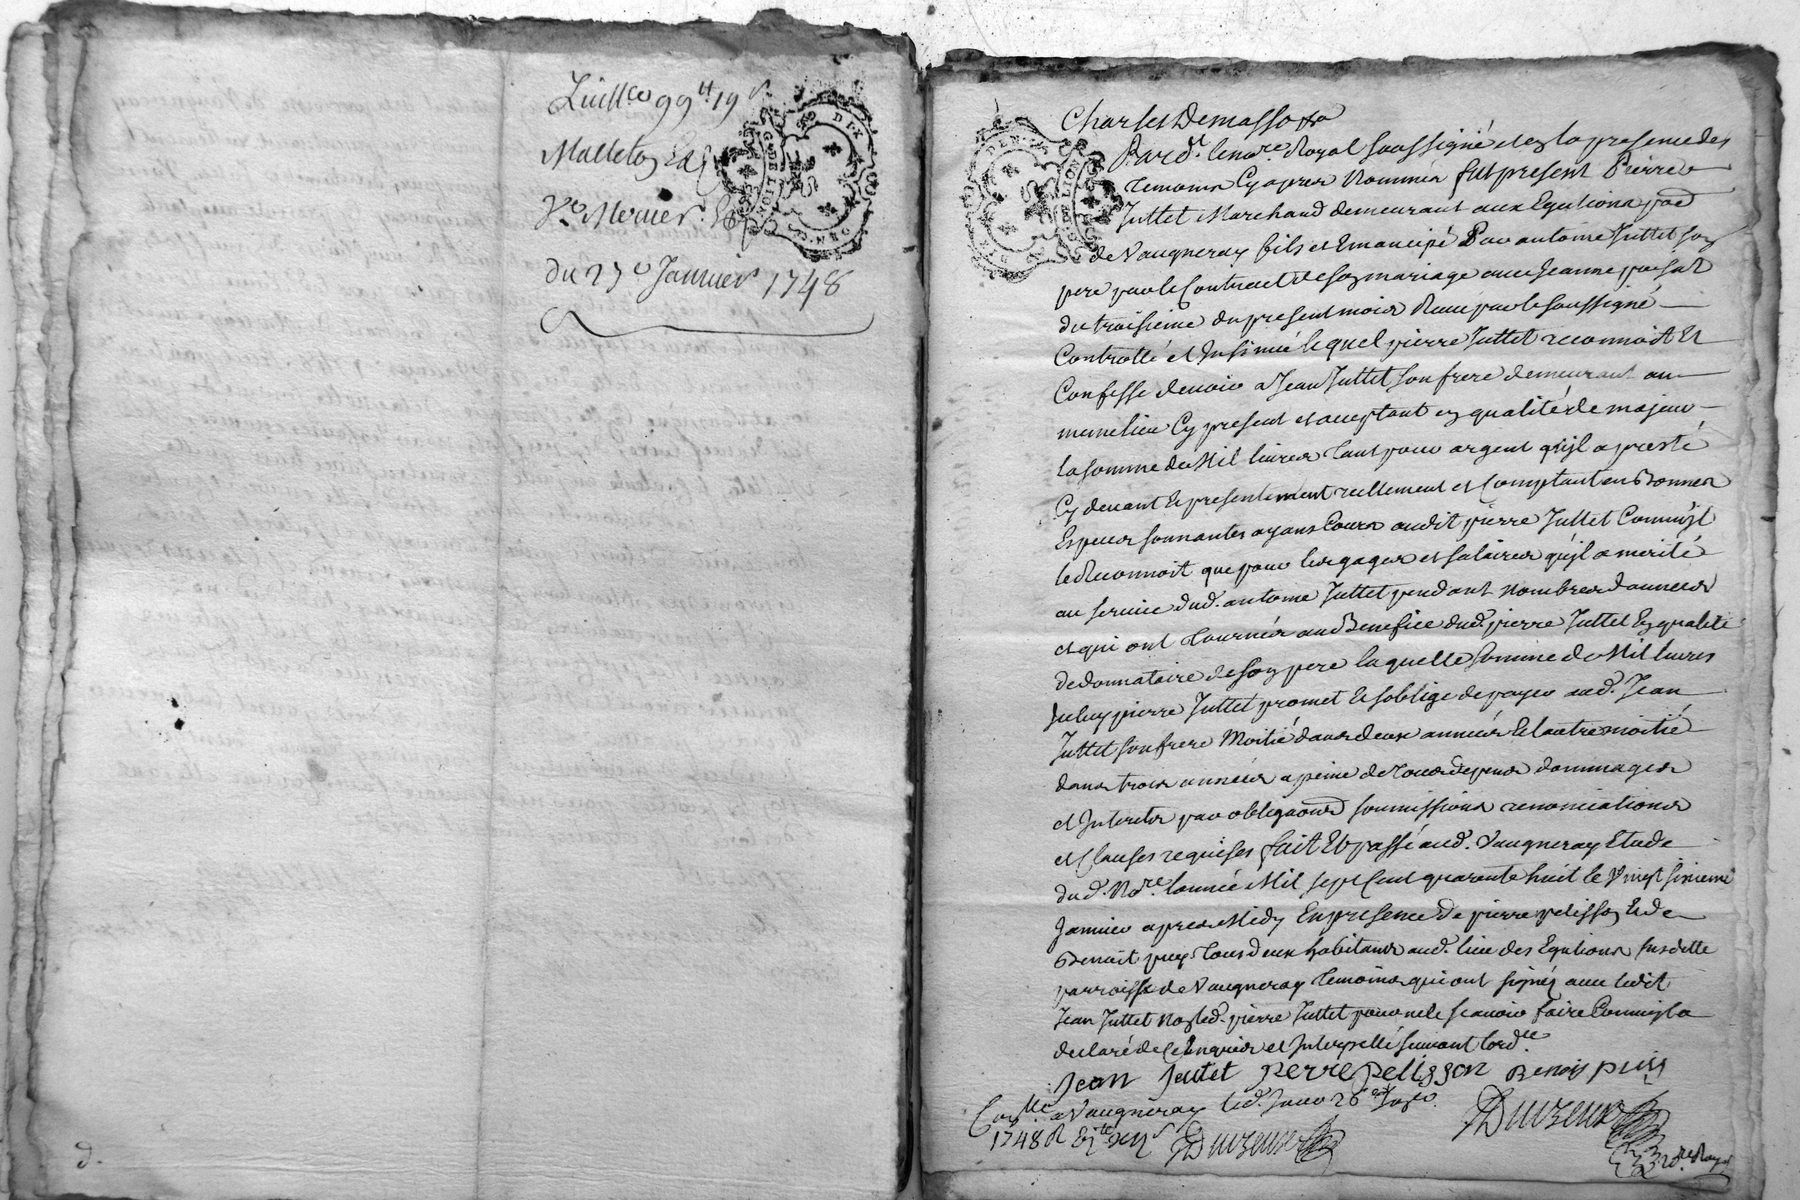 99 tt 19 s
du 27e Janvier 1748
GEN. DE LION
DIX
GEN. DE LION
Charles Demasso
Pard.t le no.re Royal soussigné et en la presence des
temoins Cy apres Nommés fut present Pierre
Juttet Marchand demeurant aux Egutions p.sse
de Vaugneray fils et Emancipé Par antoine Juttet son
pere par le Contract de son mariage avec Jeanne
du troisieme du present mois Receu par le soussigné
Controllé et Insinué lequel pierre Juttet reconnoit Et
Confesse devoir a Jean Juttet son frere demeurant au
meme lieu Cy present et acceptant en qualité de majeur
la somme de Mil livres tant pour argent qu'jl a presté
Cy devant & presentement reellement et Comptant en Bonnes
Especes sonnantes ayans Cours audit pierre Juttet Comm'jl
le Reconnoit que pour les gages et salaires qu'jl a merité
au service dud. antoine Juttet pendant nombres dannees
et qui ont tournés au Benefice dud. pierre Juttet En qualité
de donnataire de son pere laquelle somme de Mil livres
Jceluy pierre Juttet promet & soblige de payer aud. Jean
Juttet son frere Moitié dans deux années & l'autre moitié
dans trois années a peine de tous depens dommages
et Interets par obligaons soumissions renonciations
et Clauses requises fait Et passé aud. Vaugneray Etude
dud. No.re l'année Mil sept Cent quarante huit le Vingt sixieme
Janvier apres Midy En presence de pierre pelisson & de
Benoit puy tous deux habitans aud. lieu des Egutions susditte
parroisse de Vaugneray temoins qui ont signés avec ledit
Jean Juttet Non led. pierre Juttet pour ne le scavoir faire Comm'jl a
declaré de ce Enquis et Interpellé suivant lord.ce
Jean Jutet pierre pelisson Benoit puy
Con.lle a Vaugneray led. Jour 26 Janv.
1748 R